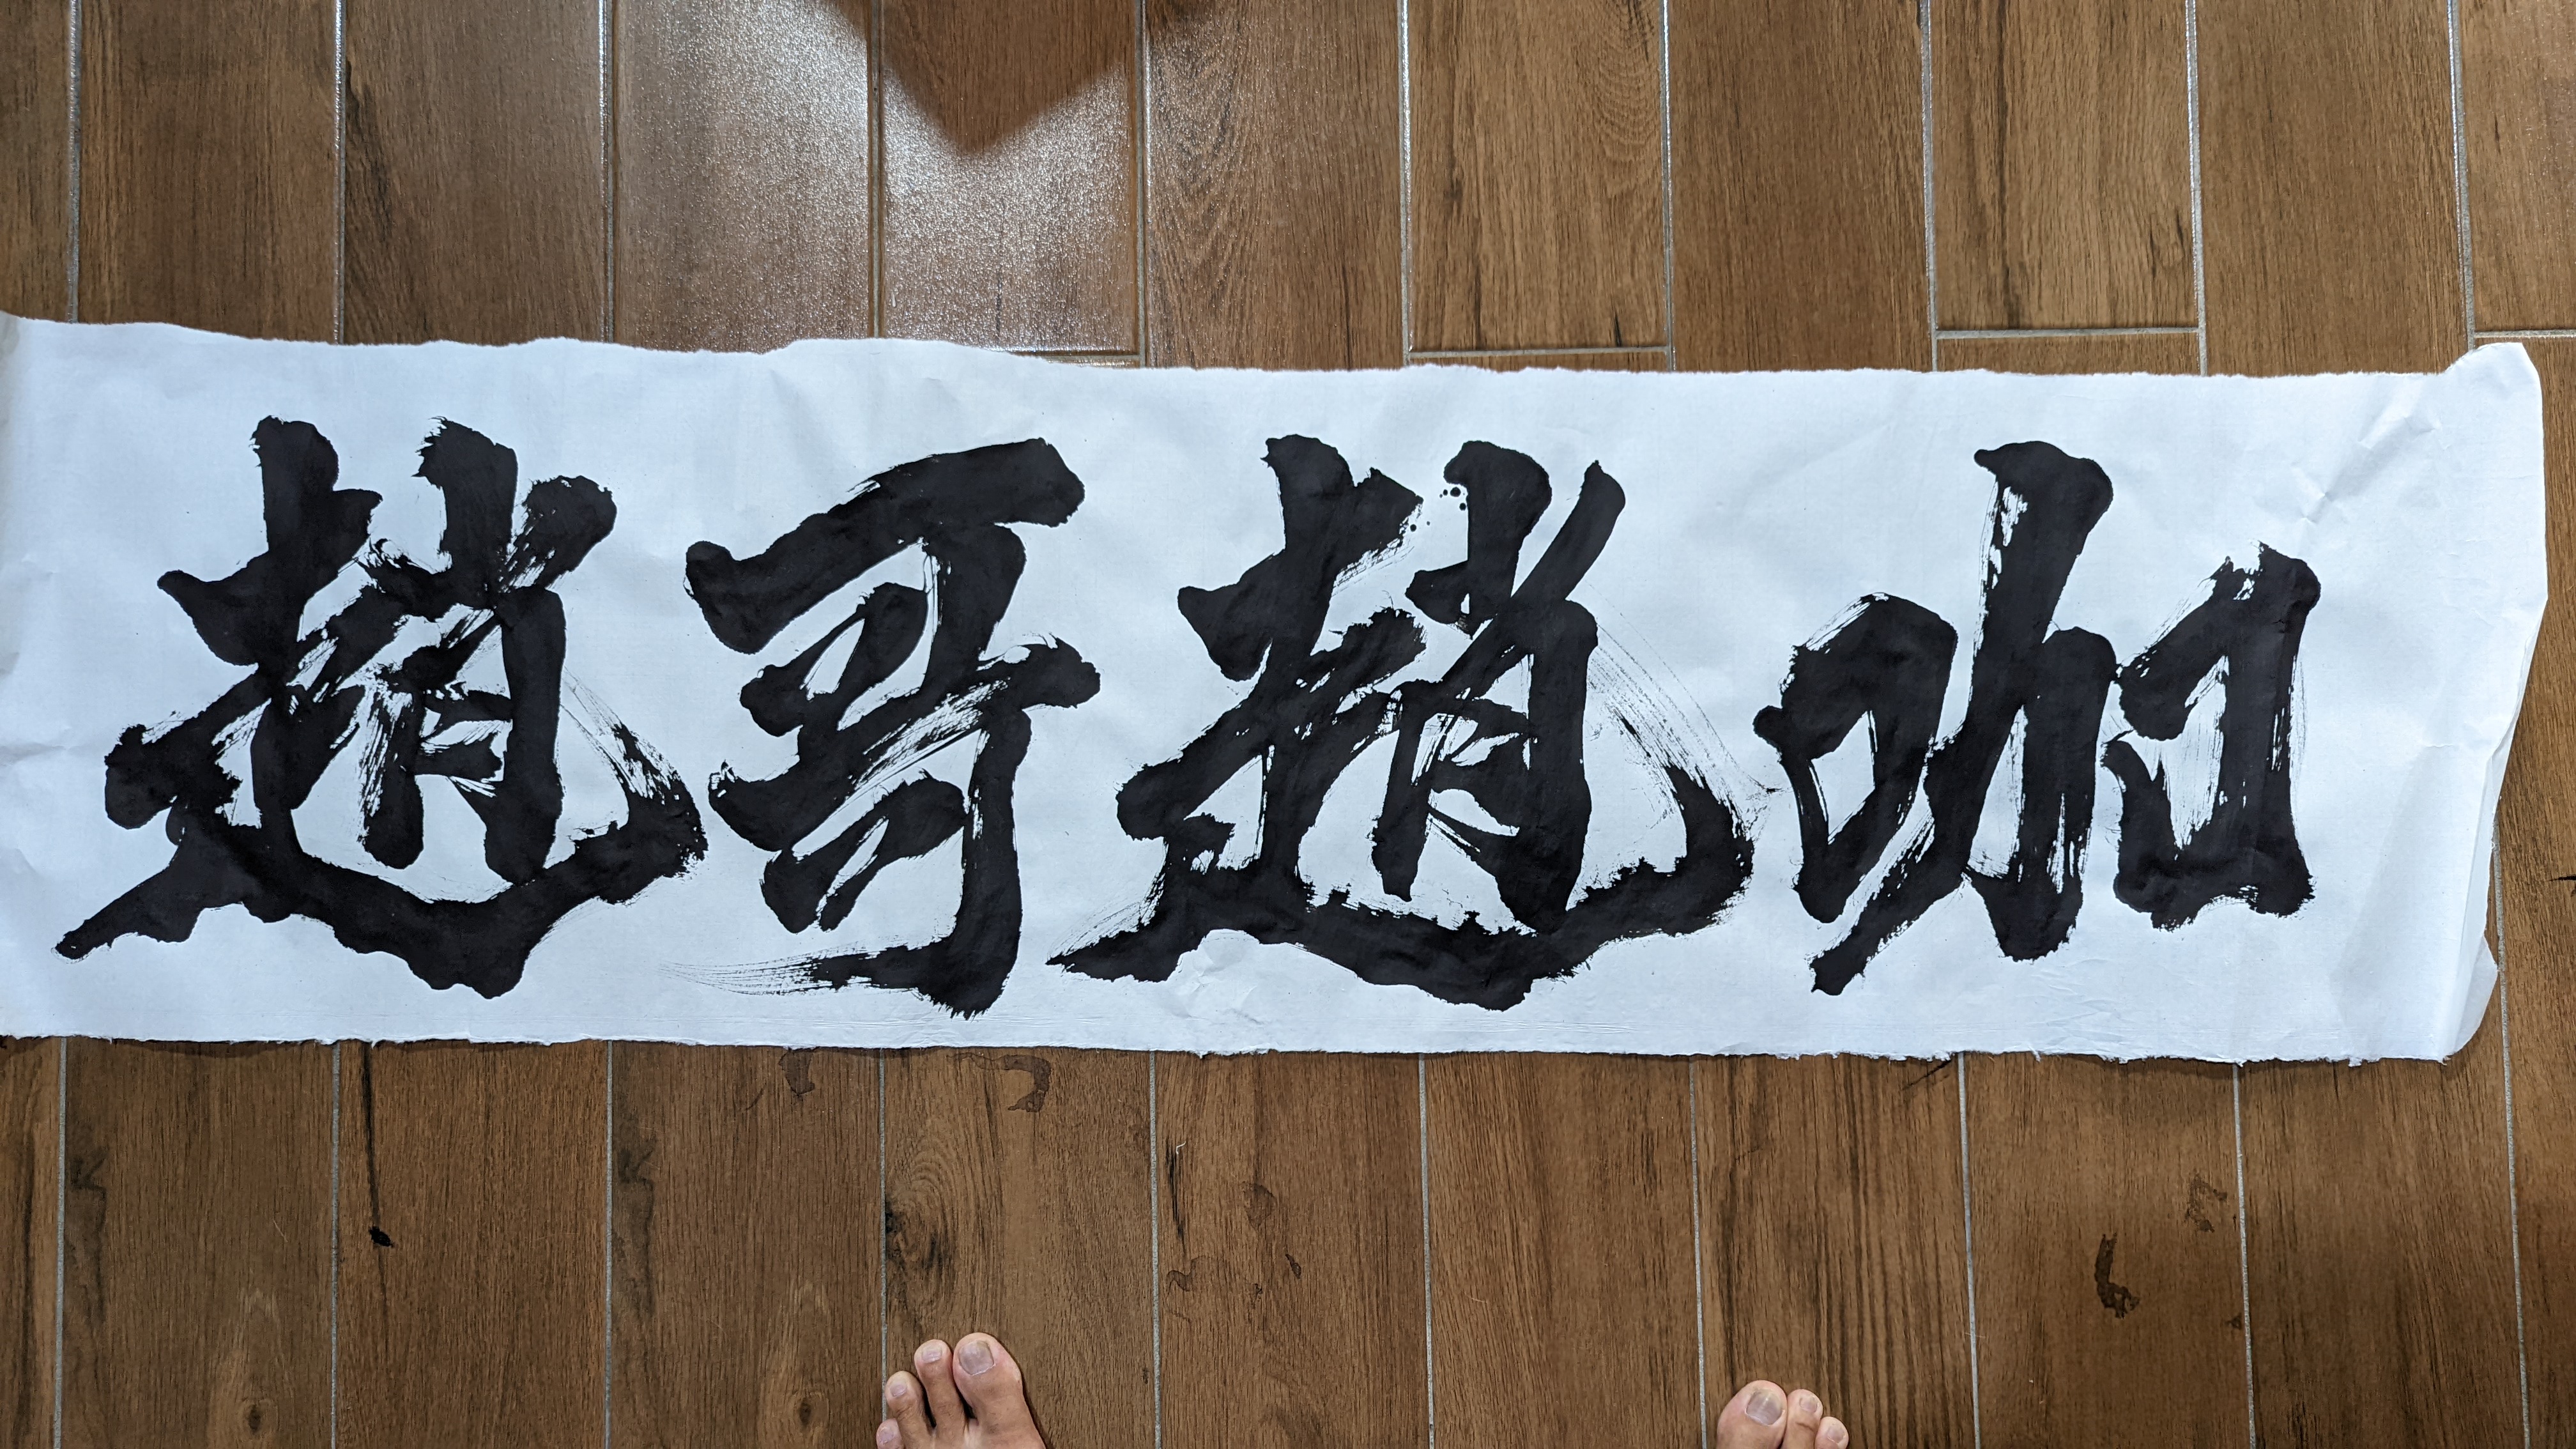 趙哥趙咖